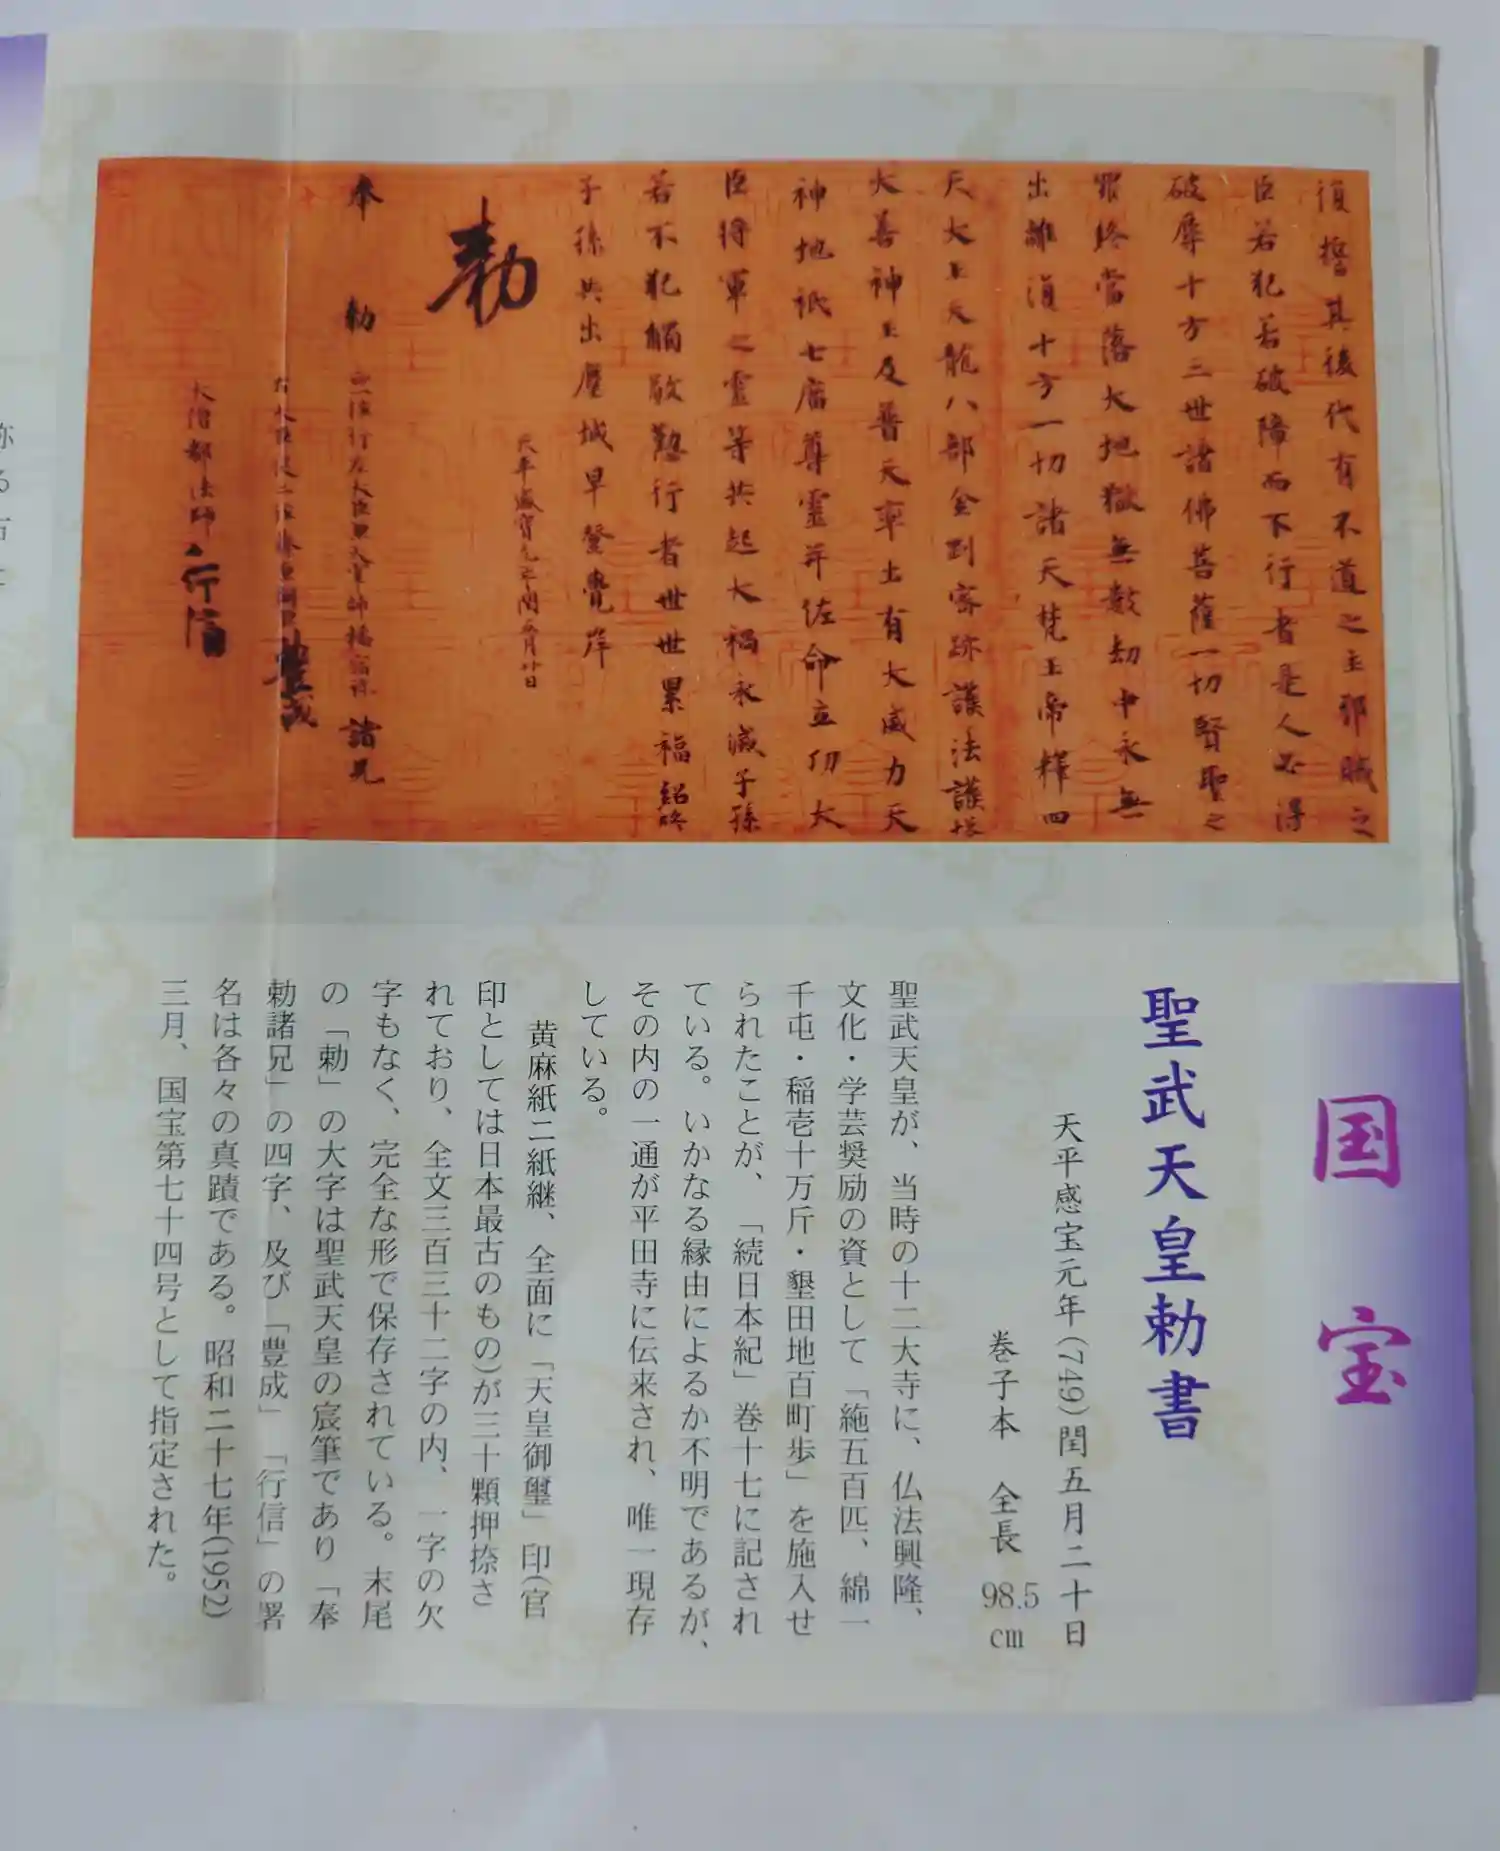 国宝
聖武天皇勅書
天平感宝元年(749)閏五月二十日
巻子本 全長 98.5cm
聖武天皇が、当時の十二大寺に、仏法興隆、
文化・学芸奨励の資として「絁五百匹、綿一
千屯・稲壱十万斤・墾田地百町歩」を施入せ
られたことが、「続日本紀」巻十七に記され
ている。いかなる縁由によるか不明であるが、
その内の一通が平田寺に伝来され、唯一現存
している。
黄麻紙二紙継、全面に「天皇御璽」印(官
印としては日本最古のもの)が三十顆押捺さ
れており、全文三百三十二字の内、一字の欠
字もなく、完全な形で保存されている。末尾
の「勅」の大字は聖武天皇の宸筆であり「奉
勅諸兄」の四字、及び「豊成」「行信」の署
名は各々の真蹟である。昭和二十七年(1952)
三月、国宝第七十四号として指定された。
復誓其後代有不道之主邪賊之
臣若犯若破障而不行者是人必得
破辱十方三世諸佛菩薩一切賢聖之
罪終當落大地獄無數劫中永無
出離復十方一切諸天梵王帝釋四
天大王天龍八部金剛密跡護法護塔
大善神王及普天率土有大威力天
神地祇七廟尊霊并佐命立功大
臣将軍之霊等共起大禍永滅子孫
若不犯觸敬懃行者世世累福紹隆
子孫共出塵城早登覺岸
天平感寶元年閏五月廿日
勅
奉 勅 正一位行左大臣兼大宰帥橘宿祢 諸兄
右大臣従二位藤原朝臣 豊成
大僧都法師 行信